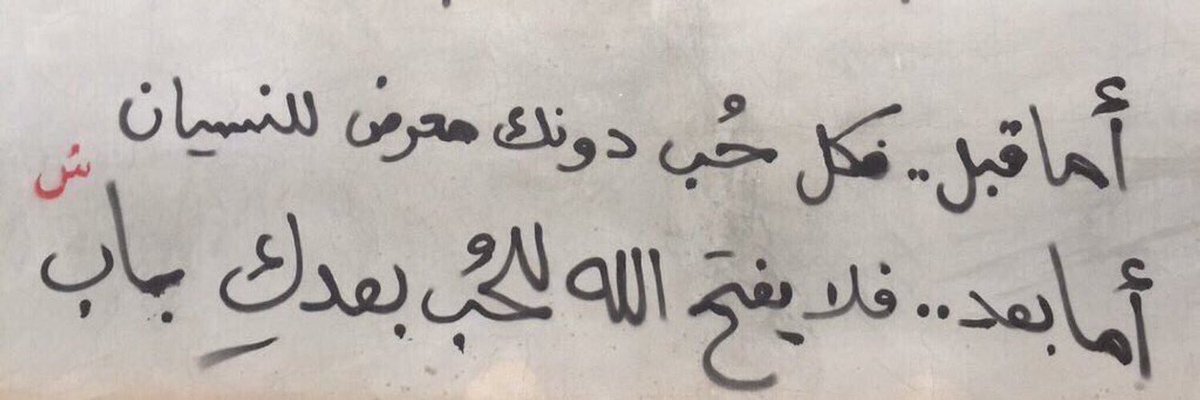 أما قبل.. فكل حُب دونك معرض للنسيان
أما بعد.. فلا يفتح الله للحُب بعدكِ باب
ش